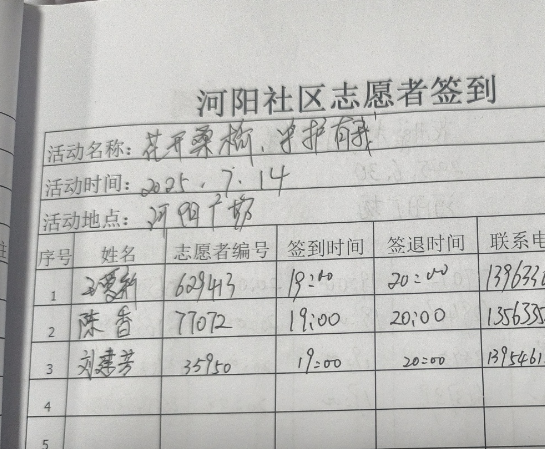 河阳社区志愿者签到
活动名称：花开栗榆、守护有我
活动时间：2025.7.14
活动地点：河阳广场
序号 姓名 志愿者编号 签到时间 签退时间 联系电
1 629413 19:00 20:00 139633
2 陈香 77072 19:00 20:00 1356335
3 刘建芳 35950 19:00 20:00 1395461
4
5